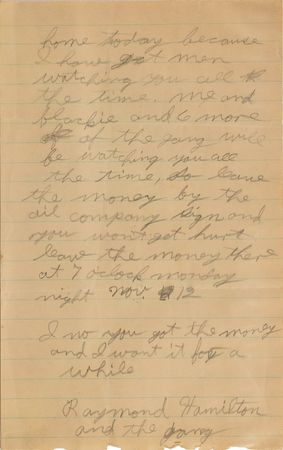 home today because
I have got men
watching you all
the time. me and
blackie and 6 more
of the gang will
be watching you all
the time, so leave
the money by the
oil company sign and
you wont get hurt
leave the money there
at 7 oclock monday
night nov. 12
I no you got the money
and I want it for a
while
Raymond Hamilton
and the gang